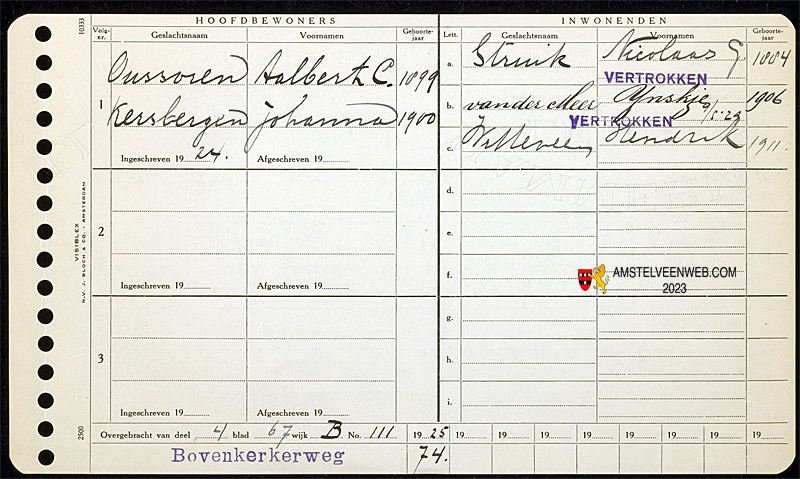 HOOFDBEWONERS
Volg-nr. Geslachtsnaam Voornamen Geboorte-jaar
1 Oussoren Aalbert C. 1899
Kersbergen Johanna 1900
Ingeschreven 19 24. Afgeschreven 19
2
Ingeschreven 19 Afgeschreven 19
3
Ingeschreven 19 Afgeschreven 19
INWONENDEN
Lett. Geslachtsnaam Voornamen Geboorte-jaar
a. Struik Nicolaas G. 1884
VERTROKKEN
b. van der Meer Ynskje 1906
VERTROKKEN
c. Witteveen Hendrik 1911.
d.
e.
f.
AMSTELVEENWEB.COM
2023
g.
h.
i.
Overgebracht van deel 4 blad 67 wijk B No. 111 19 25 19 19 19 19 19 19 19 19
Bovenkerkerweg 74.
10333
VISIBLEX
N.V. J. BLOCH & CO. - AMSTERDAM
2500